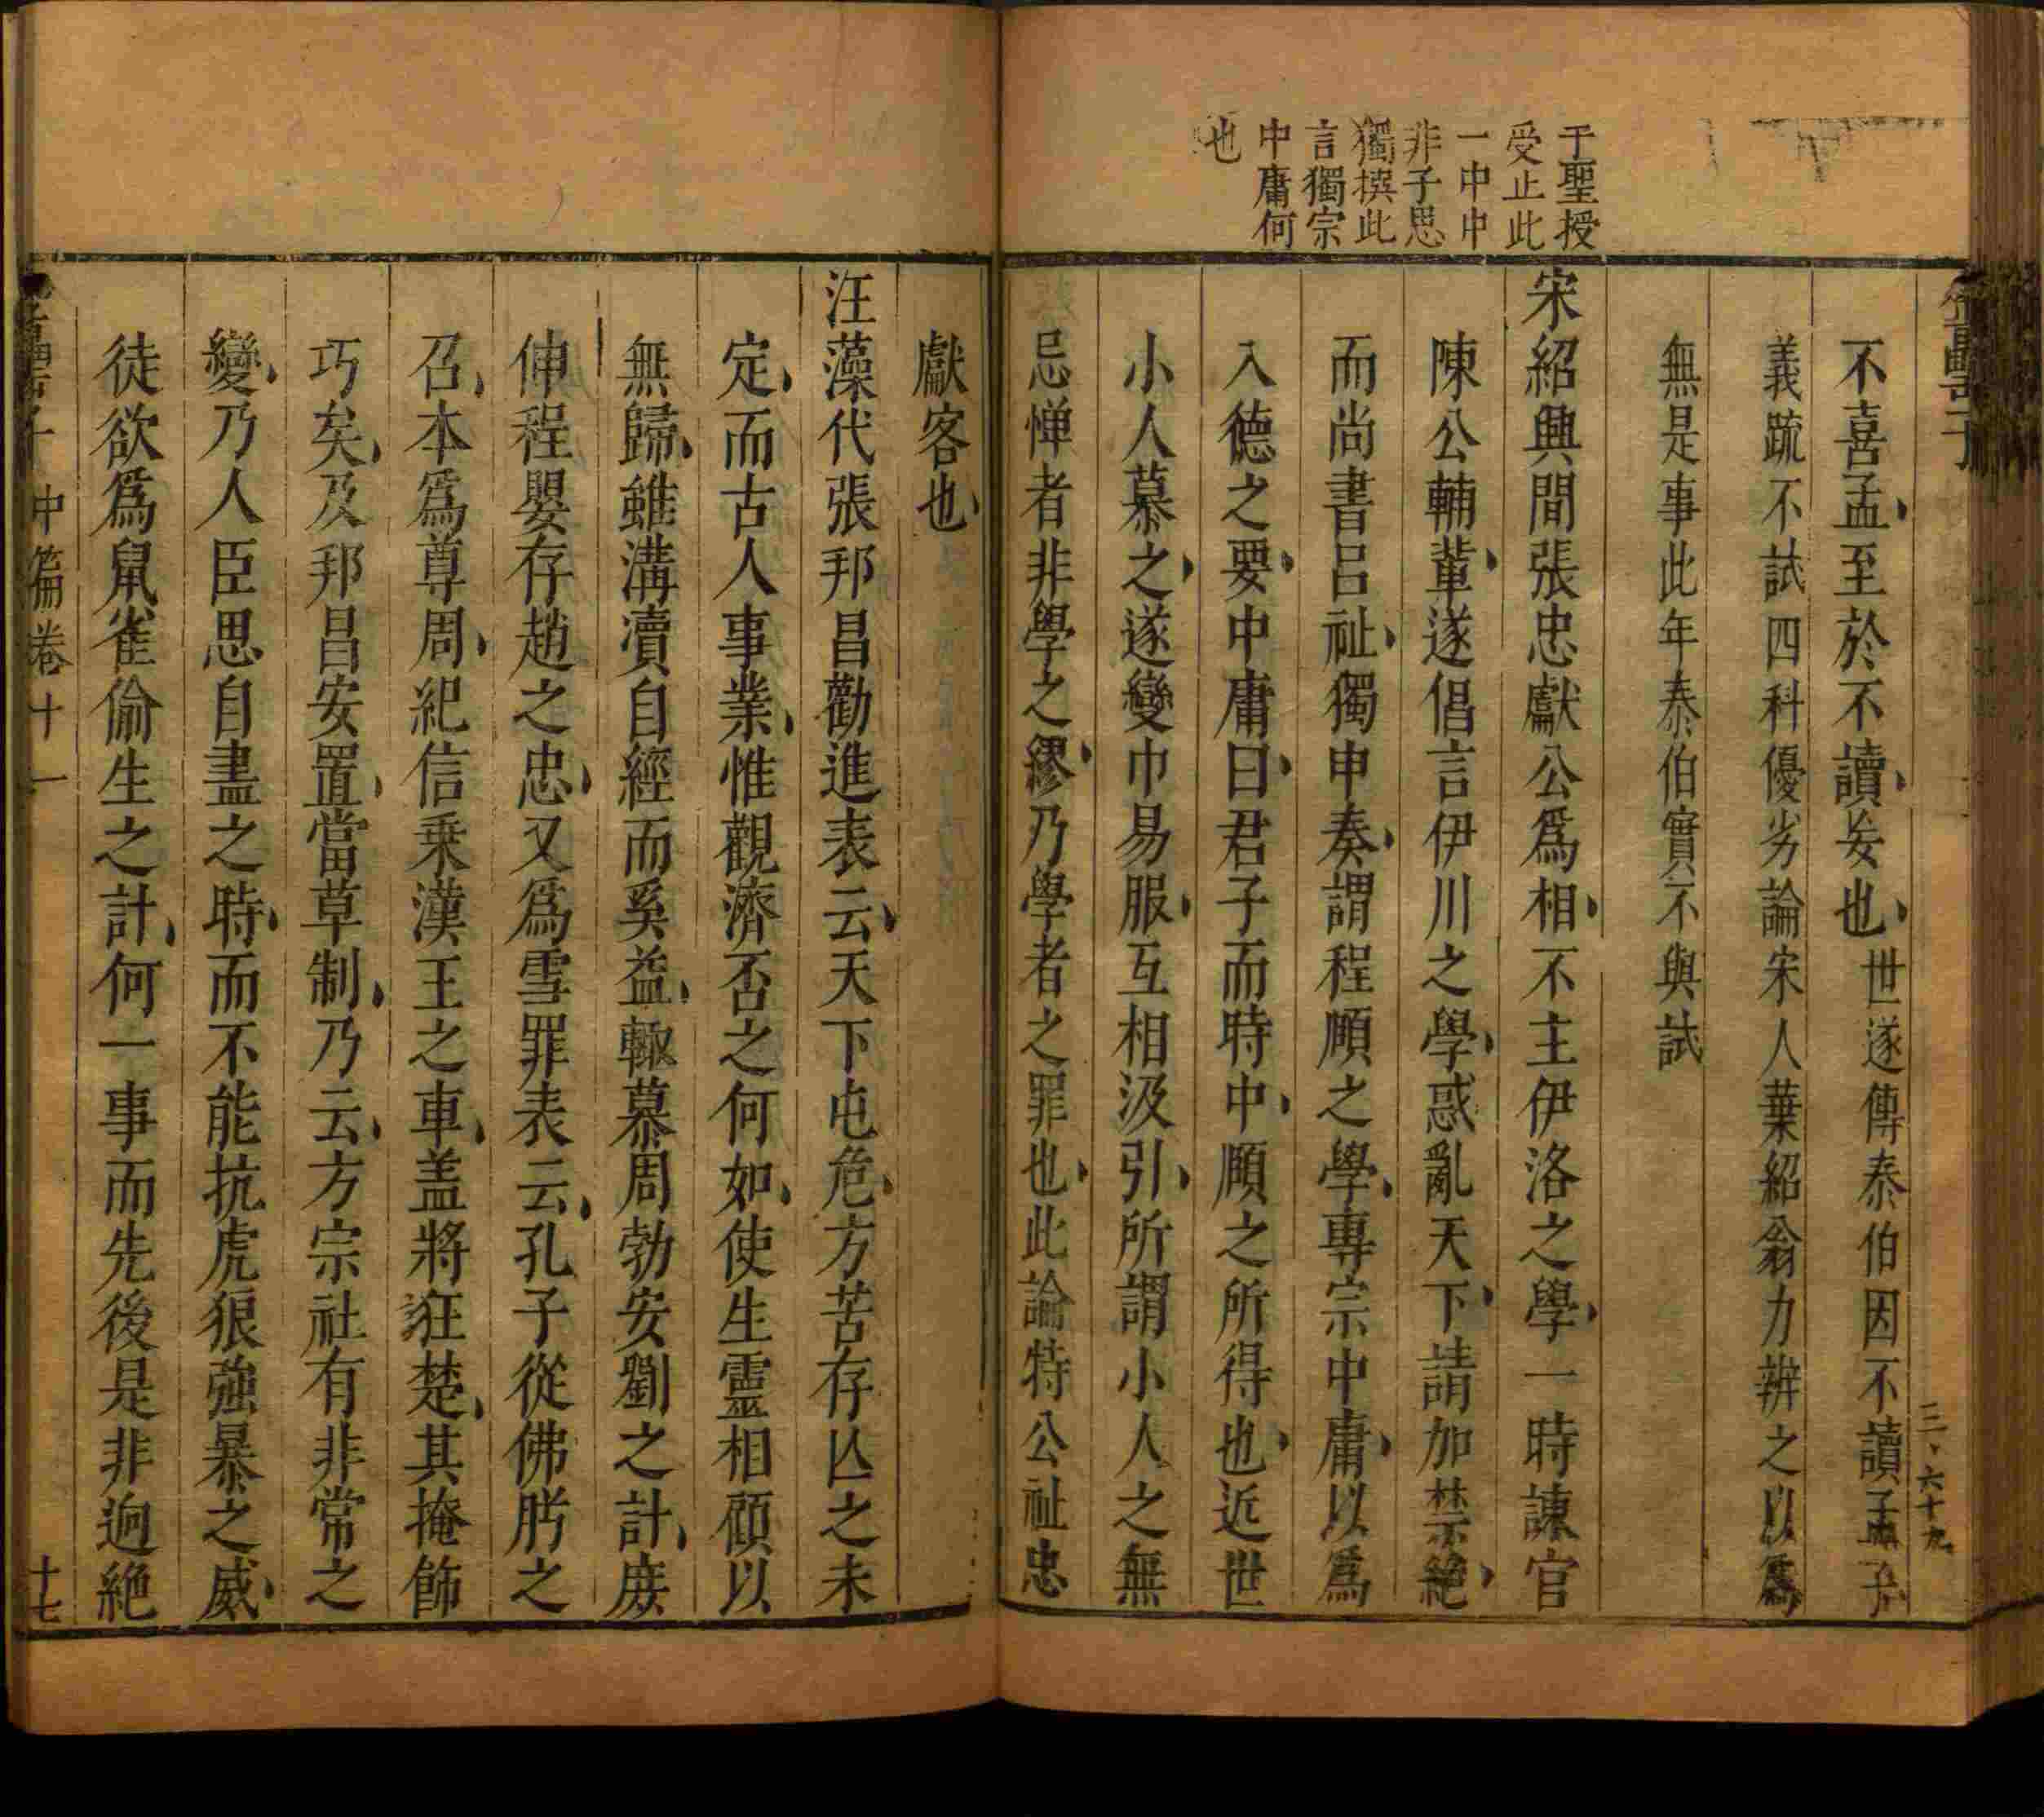 于聖授
受止此
一中中
非子思
獨撰此
言獨宗
中庸何
也
不喜孟至於不讀妄也世遂傳泰伯因不讀孟子
義疏不試四科優劣論宋人葉紹翁力辨之以爲
無是事此年泰伯實不與試
宋紹興間張忠獻公爲相不主伊洛之學一時諫官
陳公輔輩遂倡言伊川之學惑亂天下請加禁絕
而尚書吕祉獨申奏謂程頤之學專宗中庸以爲
入德之要中庸曰君子而時中頤之所得也近世
小人慕之遂變巾易服互相汲引所謂小人之無
忌憚者非學之繆乃學者之罪也此論特公祉忠
三、六十九
獻客也
汪藻代張邦昌勸進表云天下屯危方苦存亾之未
定而古人事業惟觀濟否之何如使生靈相顧以
無歸雖溝瀆自經而奚益輙慕周勃安劉之計庻
伸程嬰存趙之忠又爲雪罪表云孔子從佛肸之
召本爲尊周紀信乗漢王之車盖將誑楚其掩飾
巧矣及邦昌安置當草制乃云方宗社有非常之
變乃人臣思自盡之時而不能抗虎狼強暴之威
徒欲爲鼠雀偷生之計何一事而先後是非逈絕
中篇卷十一
十七